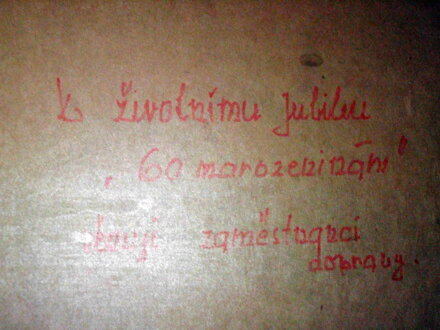 K životnímu jubileu
„60 marozeninám"
věnují zaměstnanci
dopravy.